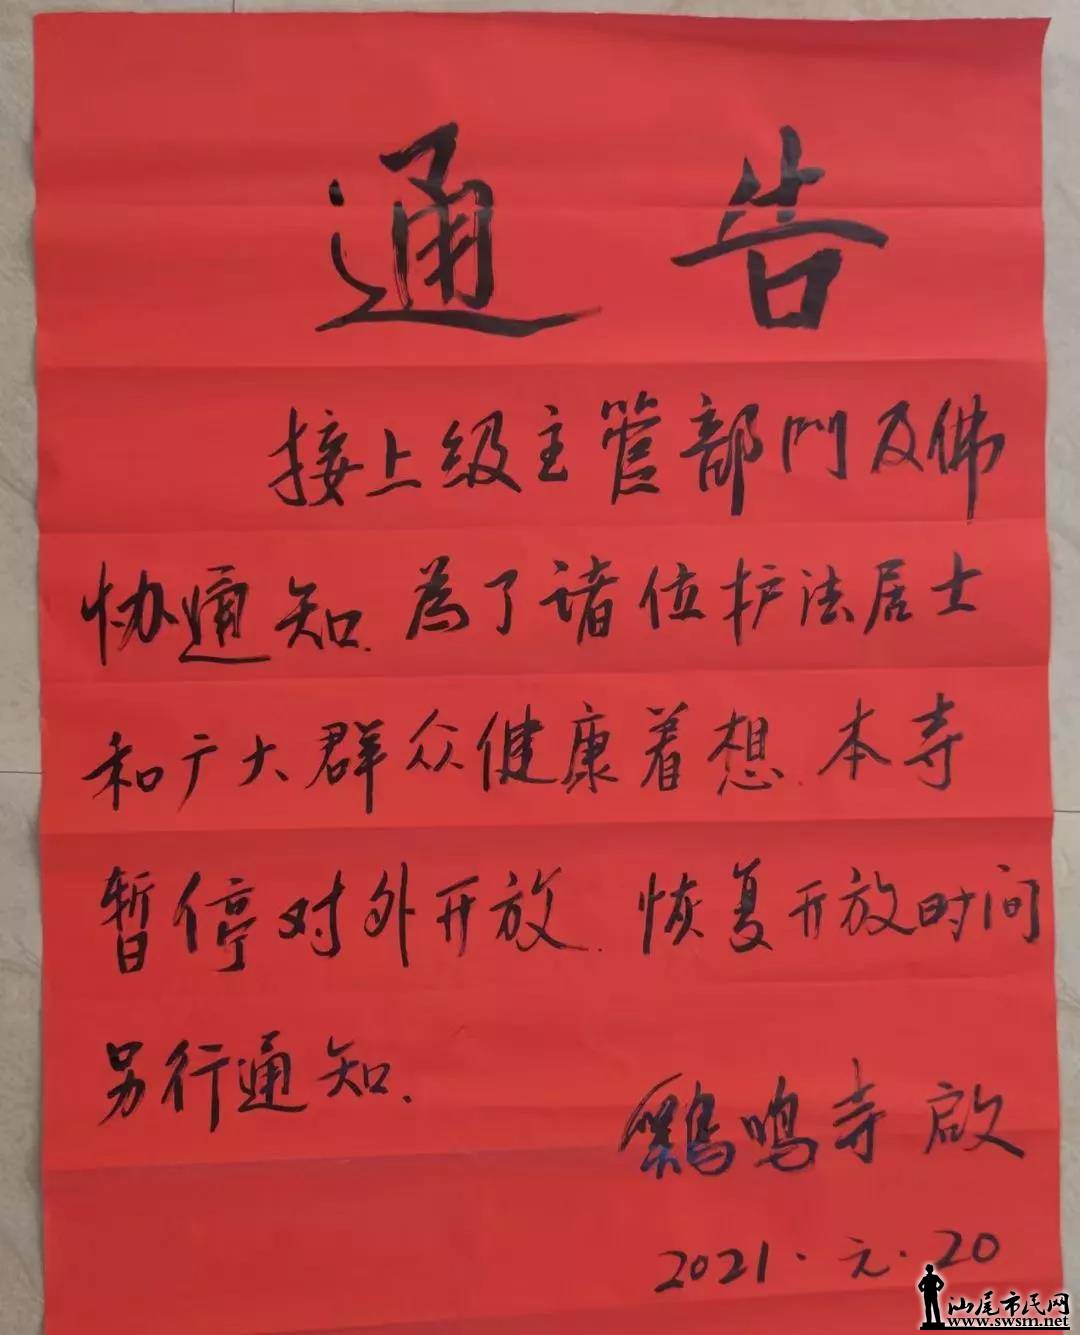 通告
接上级主管部門及佛
协通知.為了诸位护法居士
和广大群众健康着想.本寺
暂停对外开放.恢复开放时间
另行通知.
鷄鸣寺啟
2021.元.20
汕尾市民网
www.swsm.net